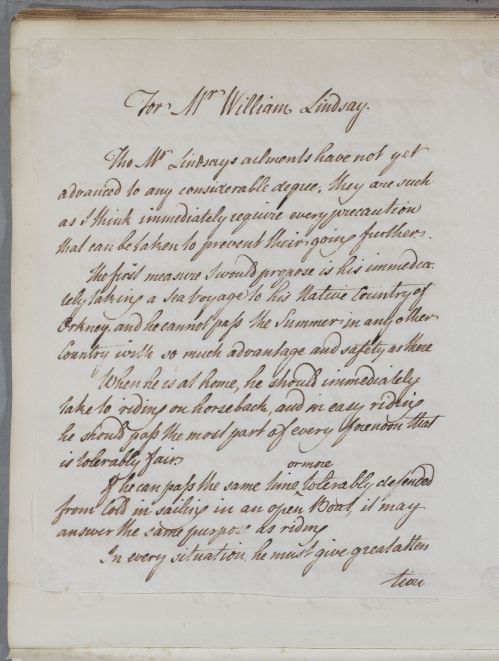 For Mr William Lindsay.
Tho Mr Lindsays ailments have not yet
advanced to any considerable degree; they are such
as I think immediately require every precaution
that can be taken to prevent their going further.
The first measure I would propose is his immedia:
tely taking a Sea Voyage to his Native Country of
Orkney, and he cannot pass the Summer in any other
Country with so much advantage and safety as there
When he is at home, he should immediately
take to riding on horseback, and in easy riding
he should pass the most part of every forenoon that
is tolerably fair
or more
If he can pass the same time tolerably defended
from Cold in sailing in an open Boat, it may
answer the same purpose as riding
In every situation, he must give great atten
tion